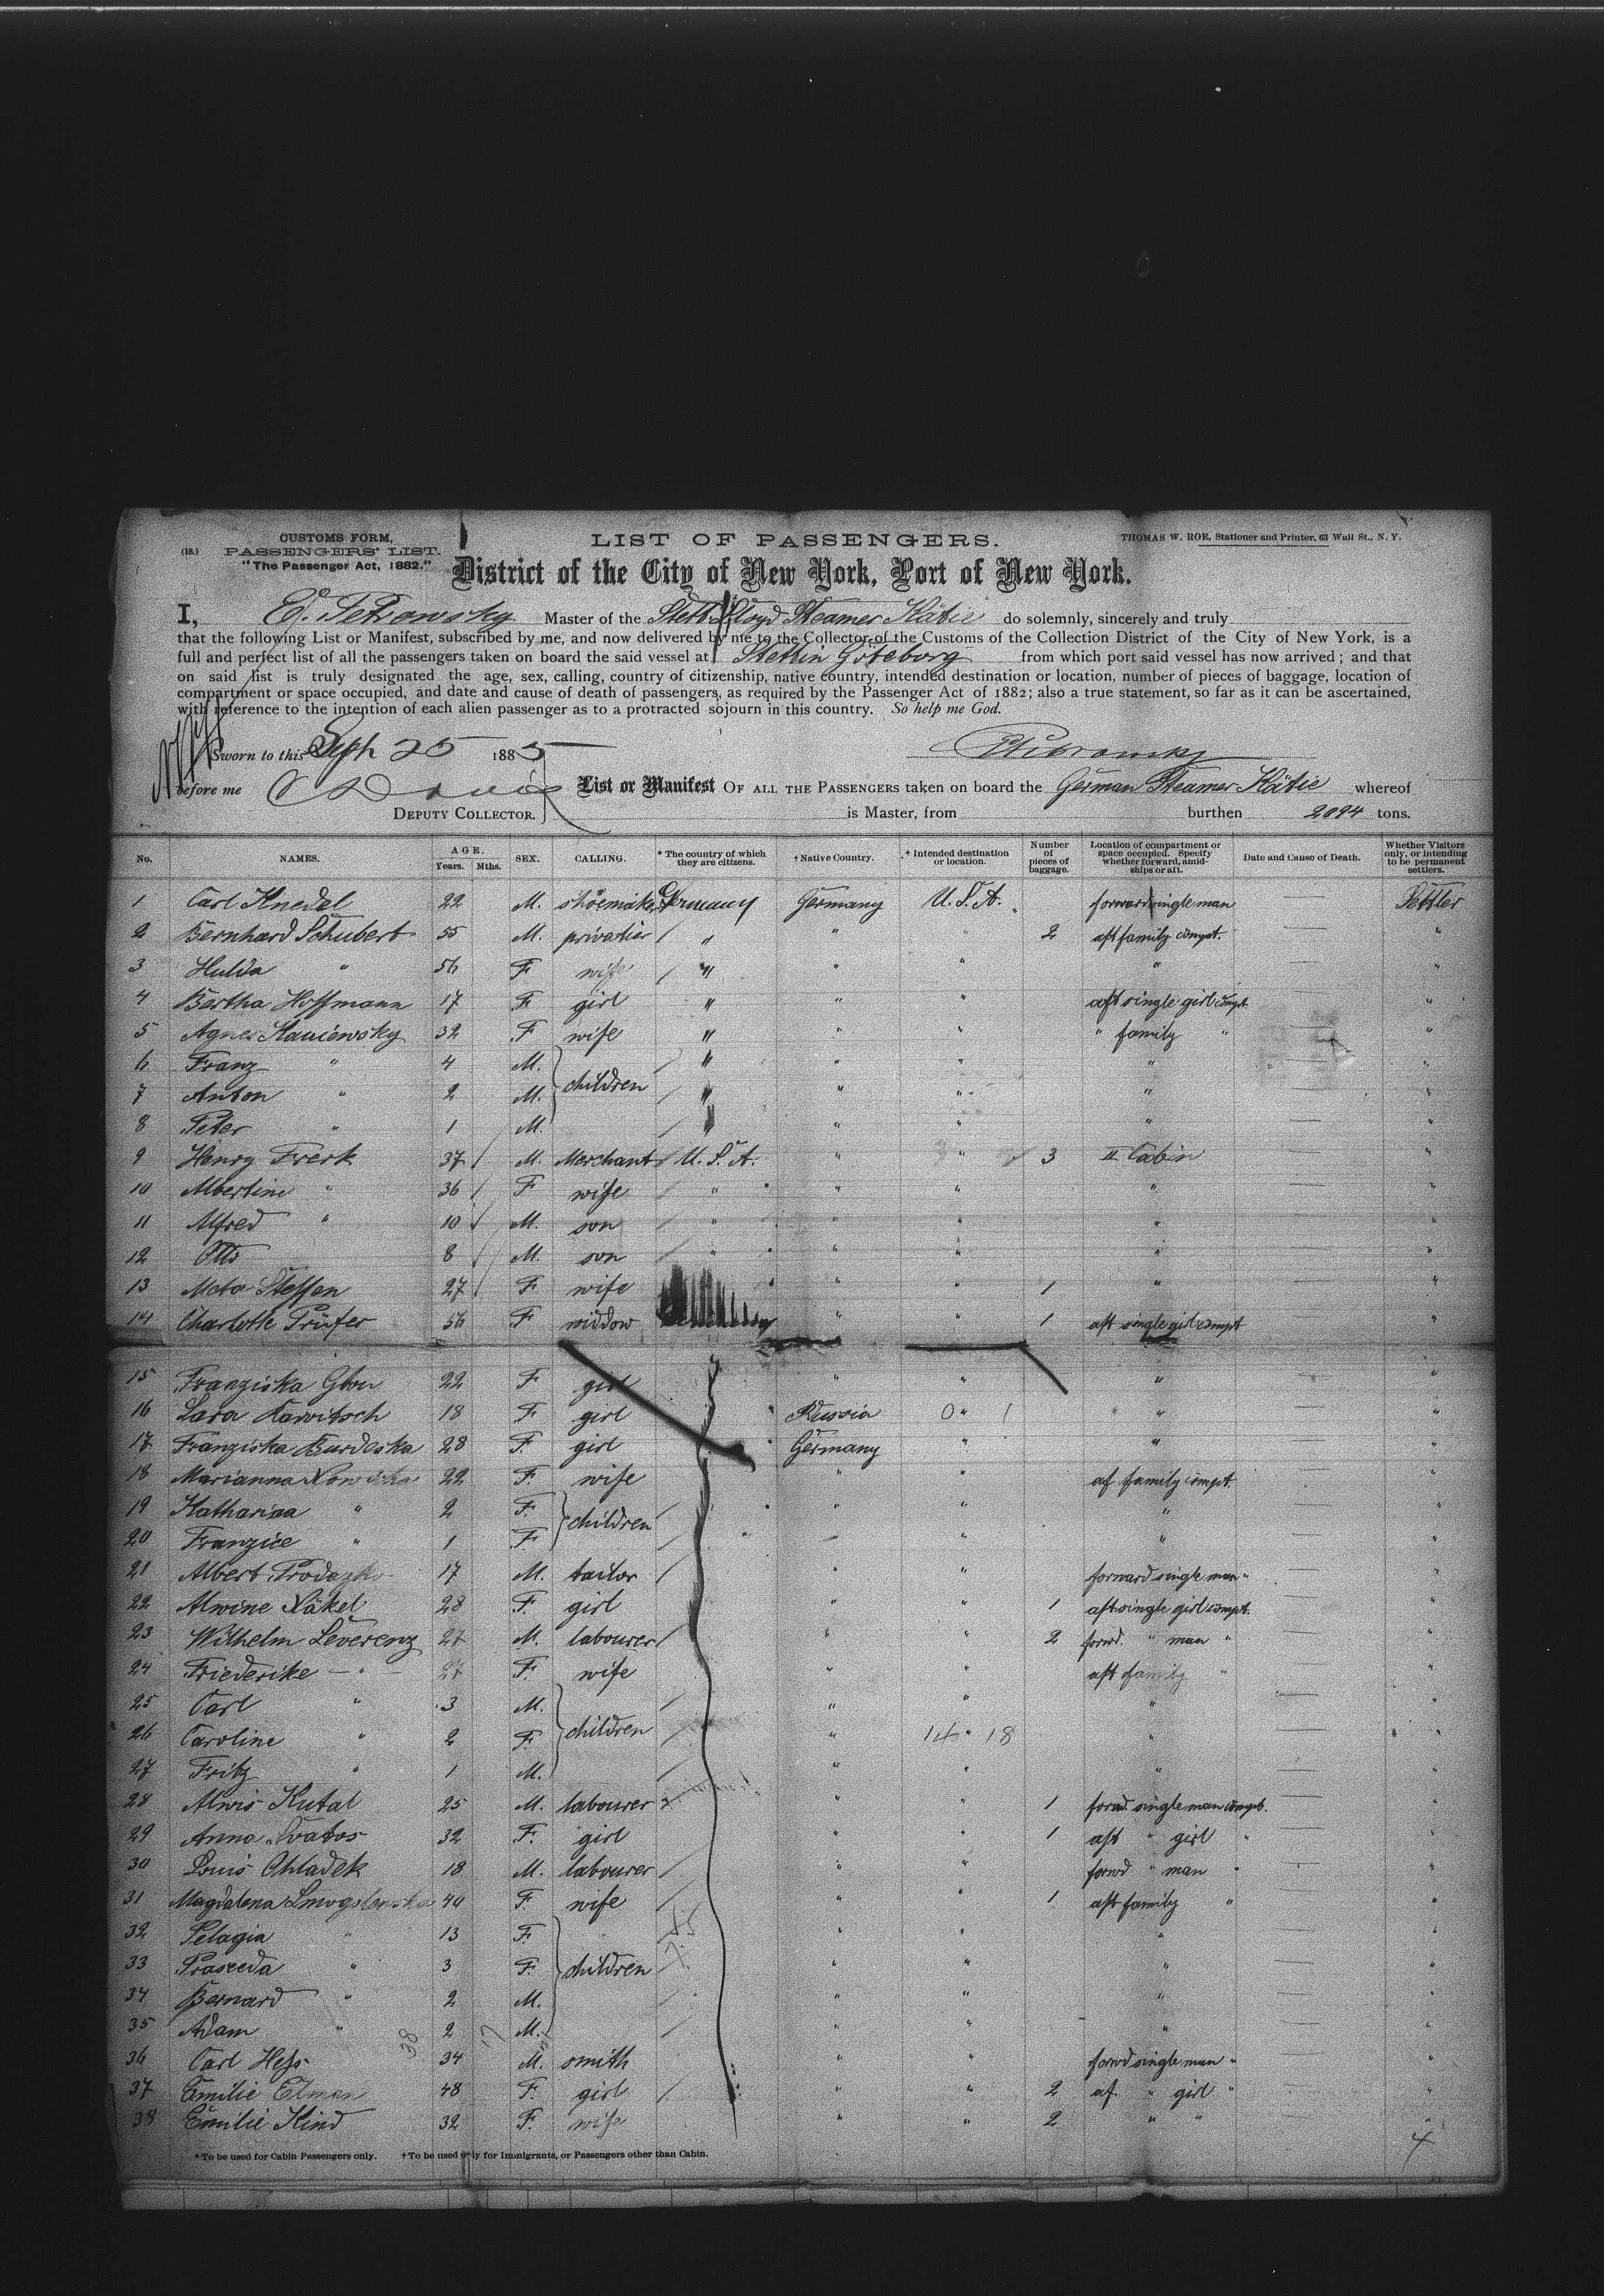 CUSTOMS FORM,
(18.) PASSENGERS' LIST.
"The Passenger Act, 1882."
LIST OF PASSENGERS.
THOMAS W. ROE, Stationer and Printer, 63 Wall St., N. Y.
District of the City of New York, Port of New York.
I, E. Petrowsky Master of the Stett. Lloyd Steamer Kätie do solemnly, sincerely and truly
that the following List or Manifest, subscribed by me, and now delivered by me to the Collector of the Customs of the Collection District of the City of New York, is a
full and perfect list of all the passengers taken on board the said vessel at Stettin Göteborg from which port said vessel has now arrived; and that
on said list is truly designated the age, sex, calling, country of citizenship, native country, intended destination or location, number of pieces of baggage, location of
compartment or space occupied, and date and cause of death of passengers, as required by the Passenger Act of 1882; also a true statement, so far as it can be ascertained,
with reference to the intention of each alien passenger as to a protracted sojourn in this country. So help me God.
Sworn to this Sept 25 1885 Petrowsky
before me
DEPUTY COLLECTOR.
List or Manifest OF ALL THE PASSENGERS taken on board the German Steamer Kätie whereof
is Master, from burthen 2094 tons.
No. NAMES. AGE. Years. Mths. SEX. CALLING. * The country of which they are citizens. † Native Country. † Intended destination or location. Number of pieces of baggage. Location of compartment or space occupied. Specify whether forward, amidships or aft. Date and Cause of Death. Whether Visitors only, or intending to be permanent settlers.
1 Carl Knedel 22 M. shoemaker Germany Germany U. S. A. forward single man Settler
2 Bernhard Schubert 55 M. privatier " " " 2 aft family compt. "
3 Hulda " 56 F wife " " " " "
4 Bertha Hoffmann 17 F girl " " " aft single girl compt. "
5 Agnes 32 F wife " " " " family " "
6 Franz " 4 M. children " " " " "
7 Anton " 2 M. " " " " "
8 Peter " 1 M. " " " " "
9 Henry Frerk 37 M. Merchant U. S. A. " " 3 II Cabin "
10 Albertine " 36 F wife " " " " "
11 Alfred " 10 M. son " " " " "
12 Otto 8 M. son " " " " "
13 Meta Steffen 27 F wife " " " 1 " "
14 Charlotte Prüfer 56 F widdow " " 1 aft single girl compt "
15 Franziska 22 F girl " " " "
16 Sara Karvitsch 18 F girl " Russia " " "
17 Franziska Burdeska 28 F. girl " Germany " " "
18 Marianna 22 F. wife " " af family compt. "
19 Katharina " 2 F. children " " " " "
20 Franzice " 1 F " " " "
21 Albert 17 M. tailor " " forward single man " "
22 Alwine Näkel 28 F. girl " " 1 aft single girl compt. "
23 Wilhelm Leverenz 27 M. labourer " " 2 forwd. " man " "
24 Friederike " 27 F. wife " " aft family " "
25 Carl " 3 M. " " " "
26 Caroline " 2 F. children " 14 " 18 " "
27 Fritz " 1 M. " " " "
28 Alwis Kutal 25 M. labourer " " 1 forwd single man compt. "
29 Anna Svatos 32 F. girl " " 1 aft " girl " "
30 Louis Chladek 18 M. labourer " " forwd " man " "
31 Magdalena 40 F. wife " " 1 aft family " "
32 Pelagia " 13 F. " " " "
33 Praxeda " 3 F. children " " " "
34 Bernard " 2 M. " " " "
35 Adam " 2 M. " " " "
36 Carl Hess 34 M. smith " " forwd single man " "
37 Emilie Elman 48 F. girl " " 2 af. " girl " "
38 Emilie Kind 32 F. wife " " 2 " " "
4
* To be used for Cabin Passengers only. † To be used only for Immigrants, or Passengers other than Cabin.